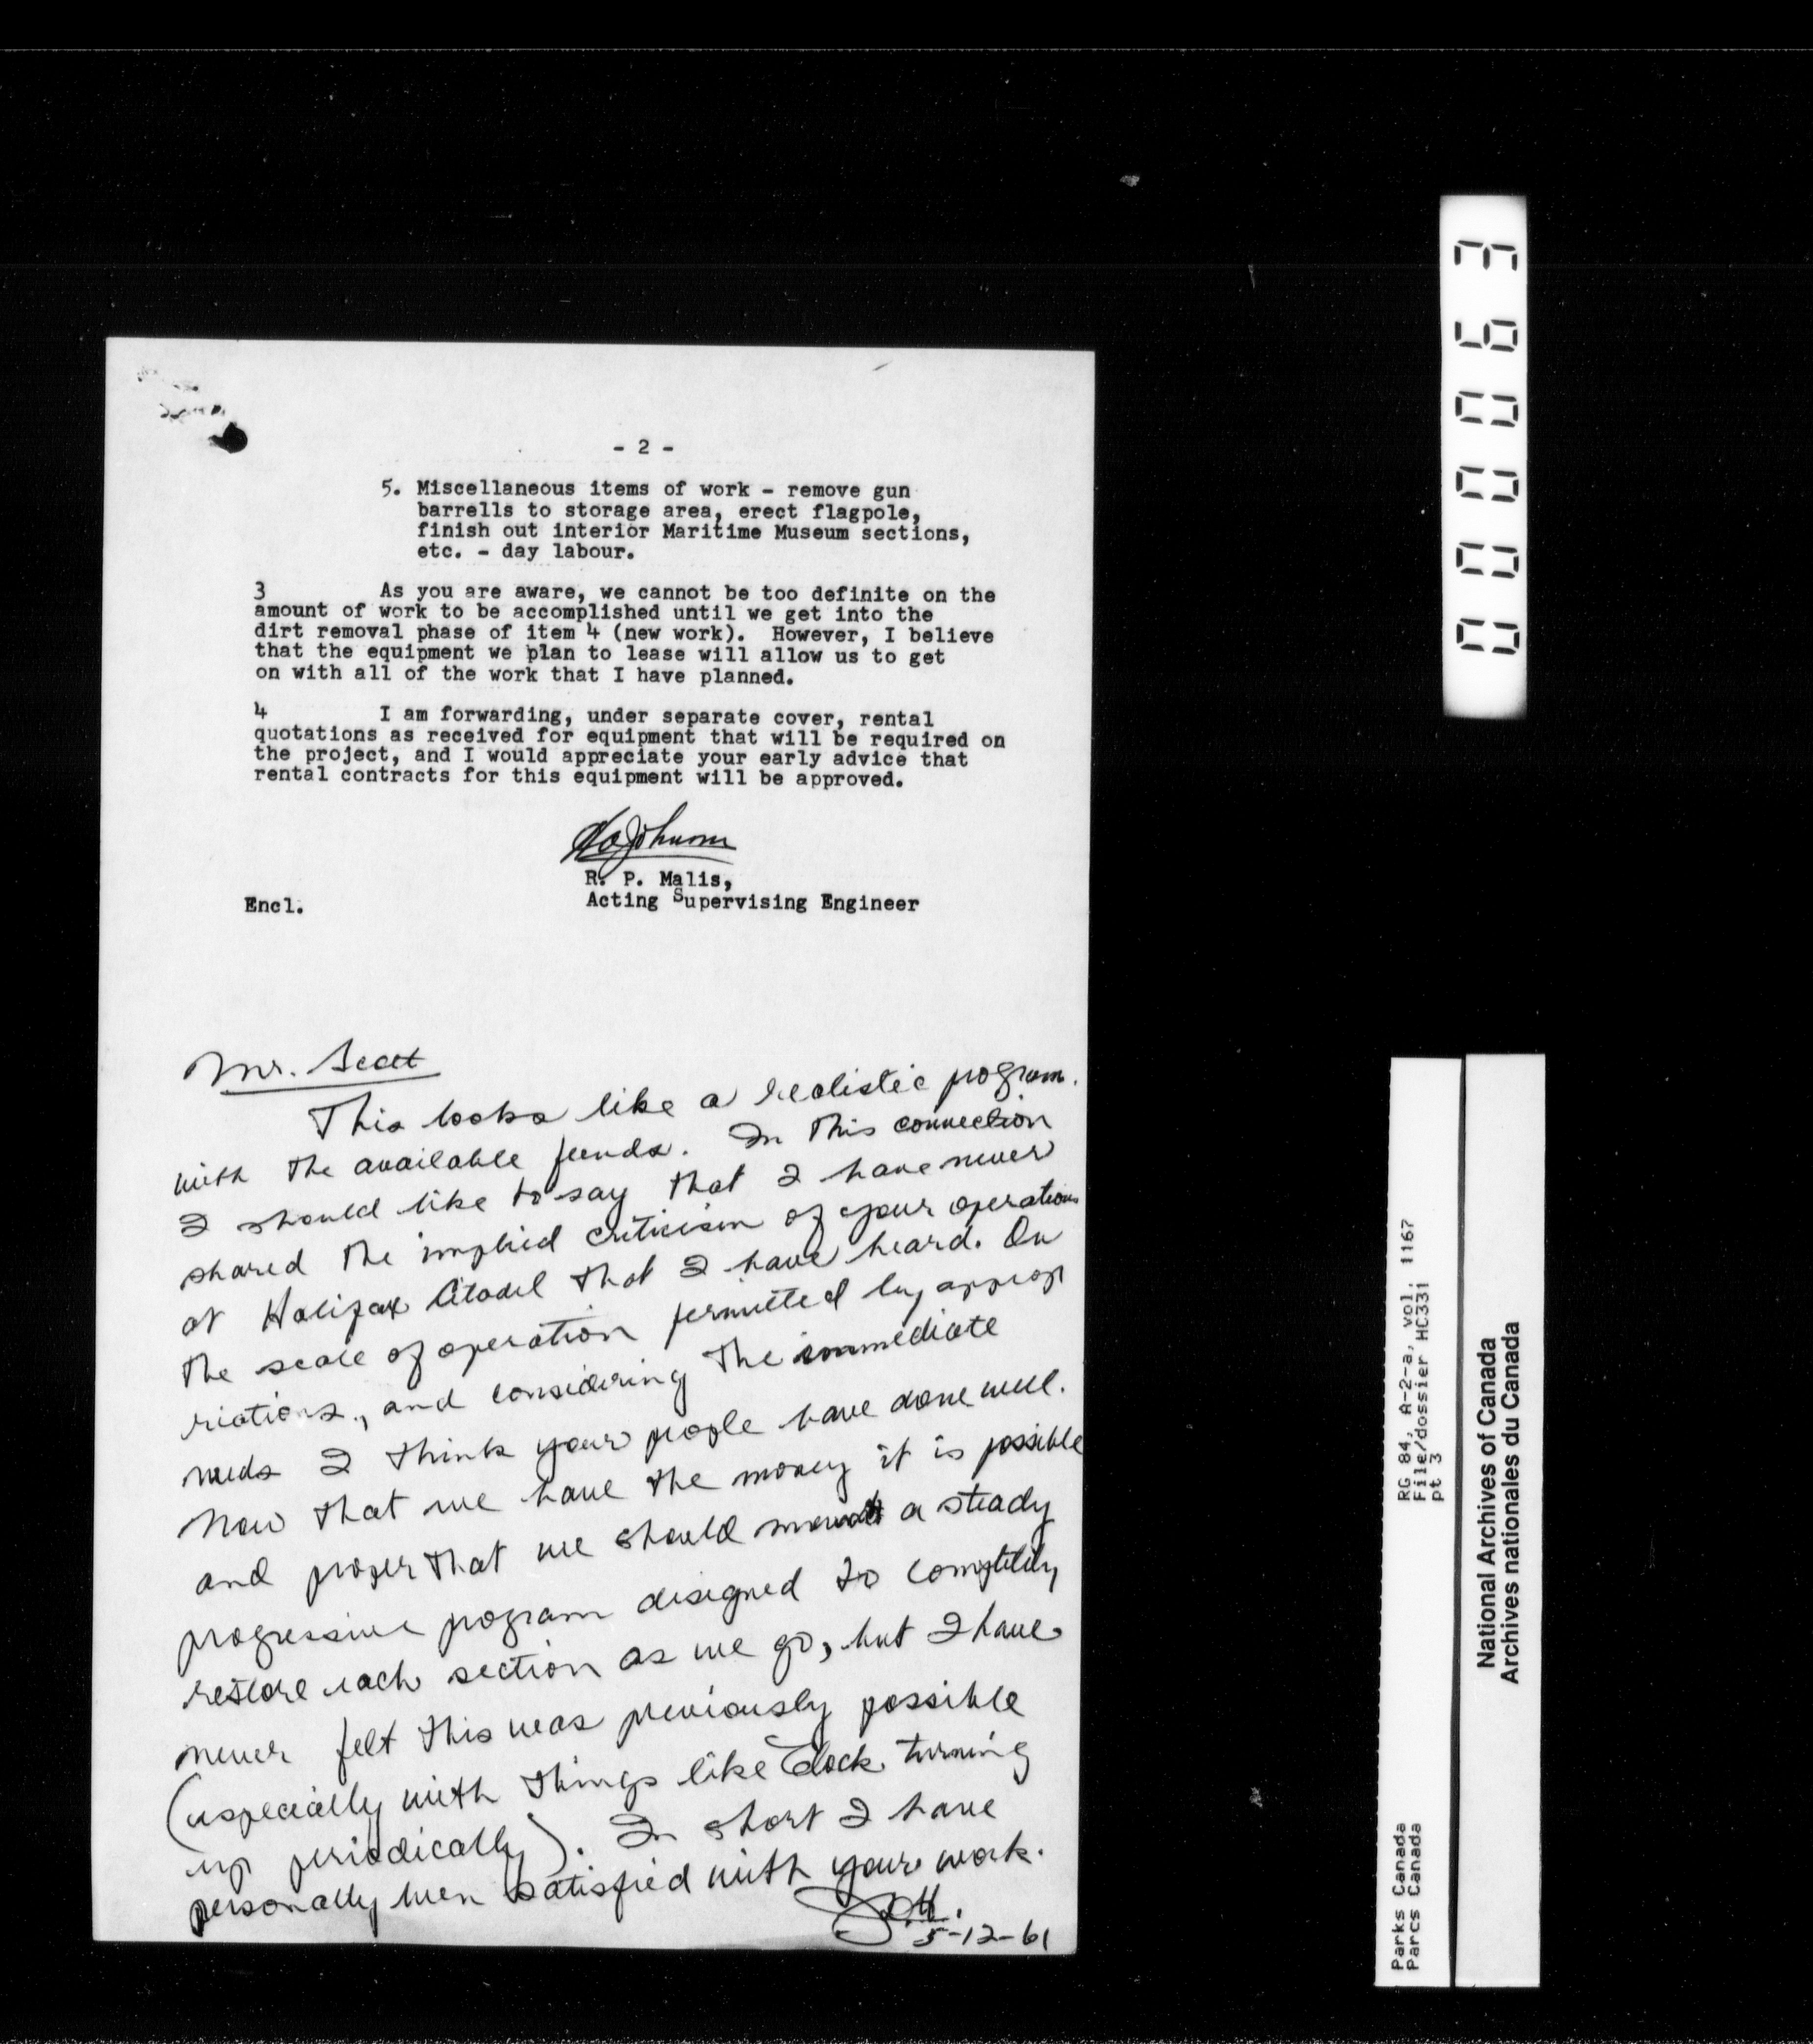 - 2 -
5. Miscellaneous items of work - remove gun
barrells to storage area, erect flagpole,
finish out interior Maritime Museum sections,
etc. - day labour.
3 As you are aware, we cannot be too definite on the
amount of work to be accomplished until we get into the
dirt removal phase of item 4 (new work). However, I believe
that the equipment we plan to lease will allow us to get
on with all of the work that I have planned.
4 I am forwarding, under separate cover, rental
quotations as received for equipment that will be required on
the project, and I would appreciate your early advice that
rental contracts for this equipment will be approved.
R. P. Malis,
Encl. Acting Supervising Engineer
Mr. Scott
This looks like a realistic program
with the available funds. In this connection
I should like to say that I have never
shared the implied criticism of your operations
at Halifax Citadel that I have heard. On
the scale of operation permitted by approp
riations, and considering the immediate
needs I think your people have done well.
Now that we have the money it is possible
and proper that we should a steady
progressive program designed to completely
restore each section as we go, but I have
never felt this was previously possible
(especially with things like Clock turning
up periodically). In short I have
personally been satisfied with your work.
5-12-61
000063
RG 84, A-2-a, vol. 1167
File/dossier HC331
pt 3
Parks Canada
Parcs Canada
National Archives of Canada
Archives nationales du Canada